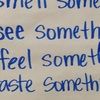 smell some
see someth
feel someth
taste someth